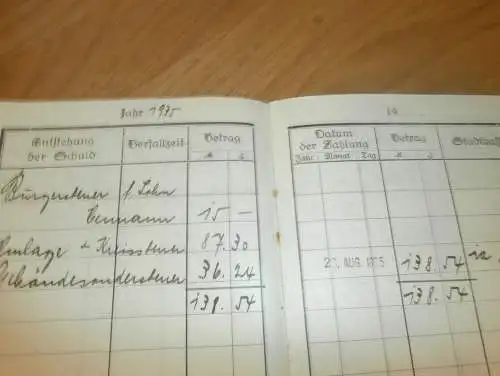 Jahr 1935
Entstehung der Schuld
Verfallzeit
Betrag
Bürgersteuer f. Sohn
Hermann 15 —
Umlage + Kreissteuer 87. 30
Gebäudesondersteuer 36. 24
138. 54
19
Datum der Zahlung
Jahr Monat Tag
Betrag
AUG. 1935 138. 54
138. 54